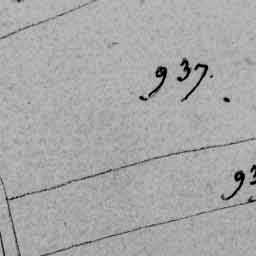 937.
93